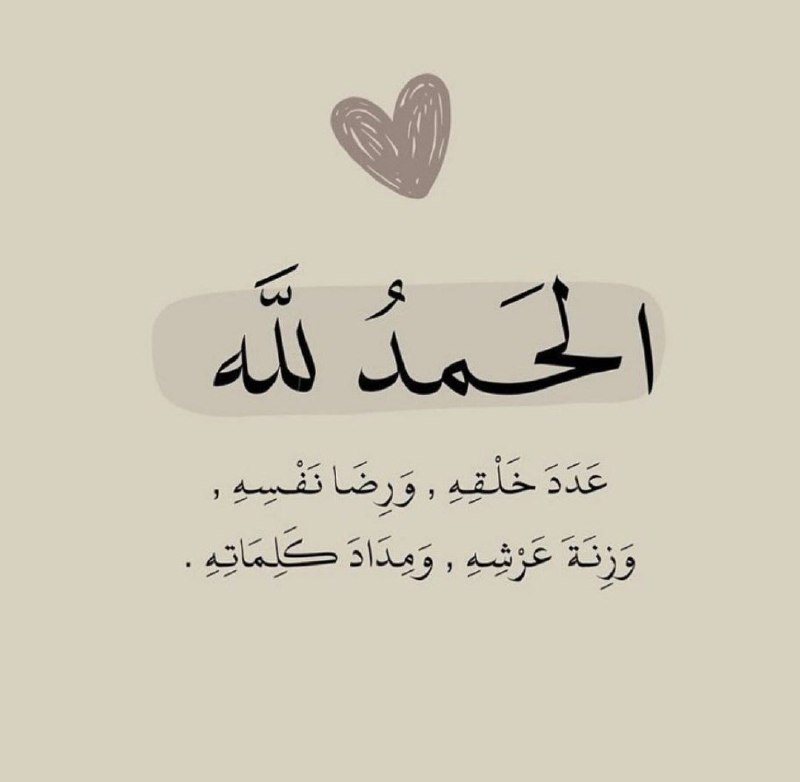 الحَمدُ للَّه
عَدَدَ خَلْقِهِ , وَرِضَا نَفْسِهِ ,
وَزِنَةَ عَرْشِهِ , وَمِدَادَ كَلِمَاتِهِ .